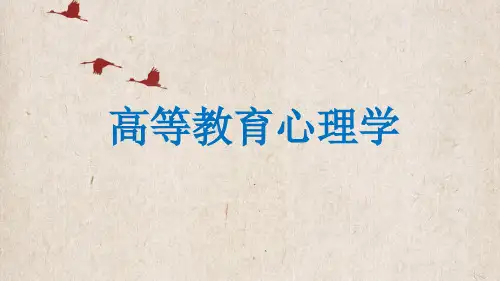 高等教育心理学